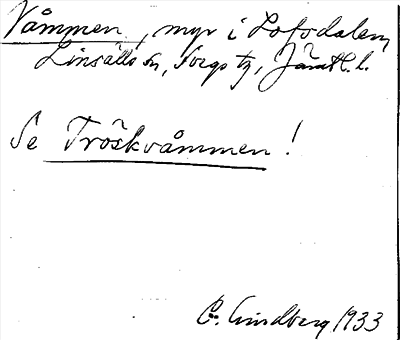 Våmmen, myr i Lofsdalen,
Linsälls sn, Svegs tg, Jämtl. l.
Se Tröskvåmmen!
C. Lindberg 1933